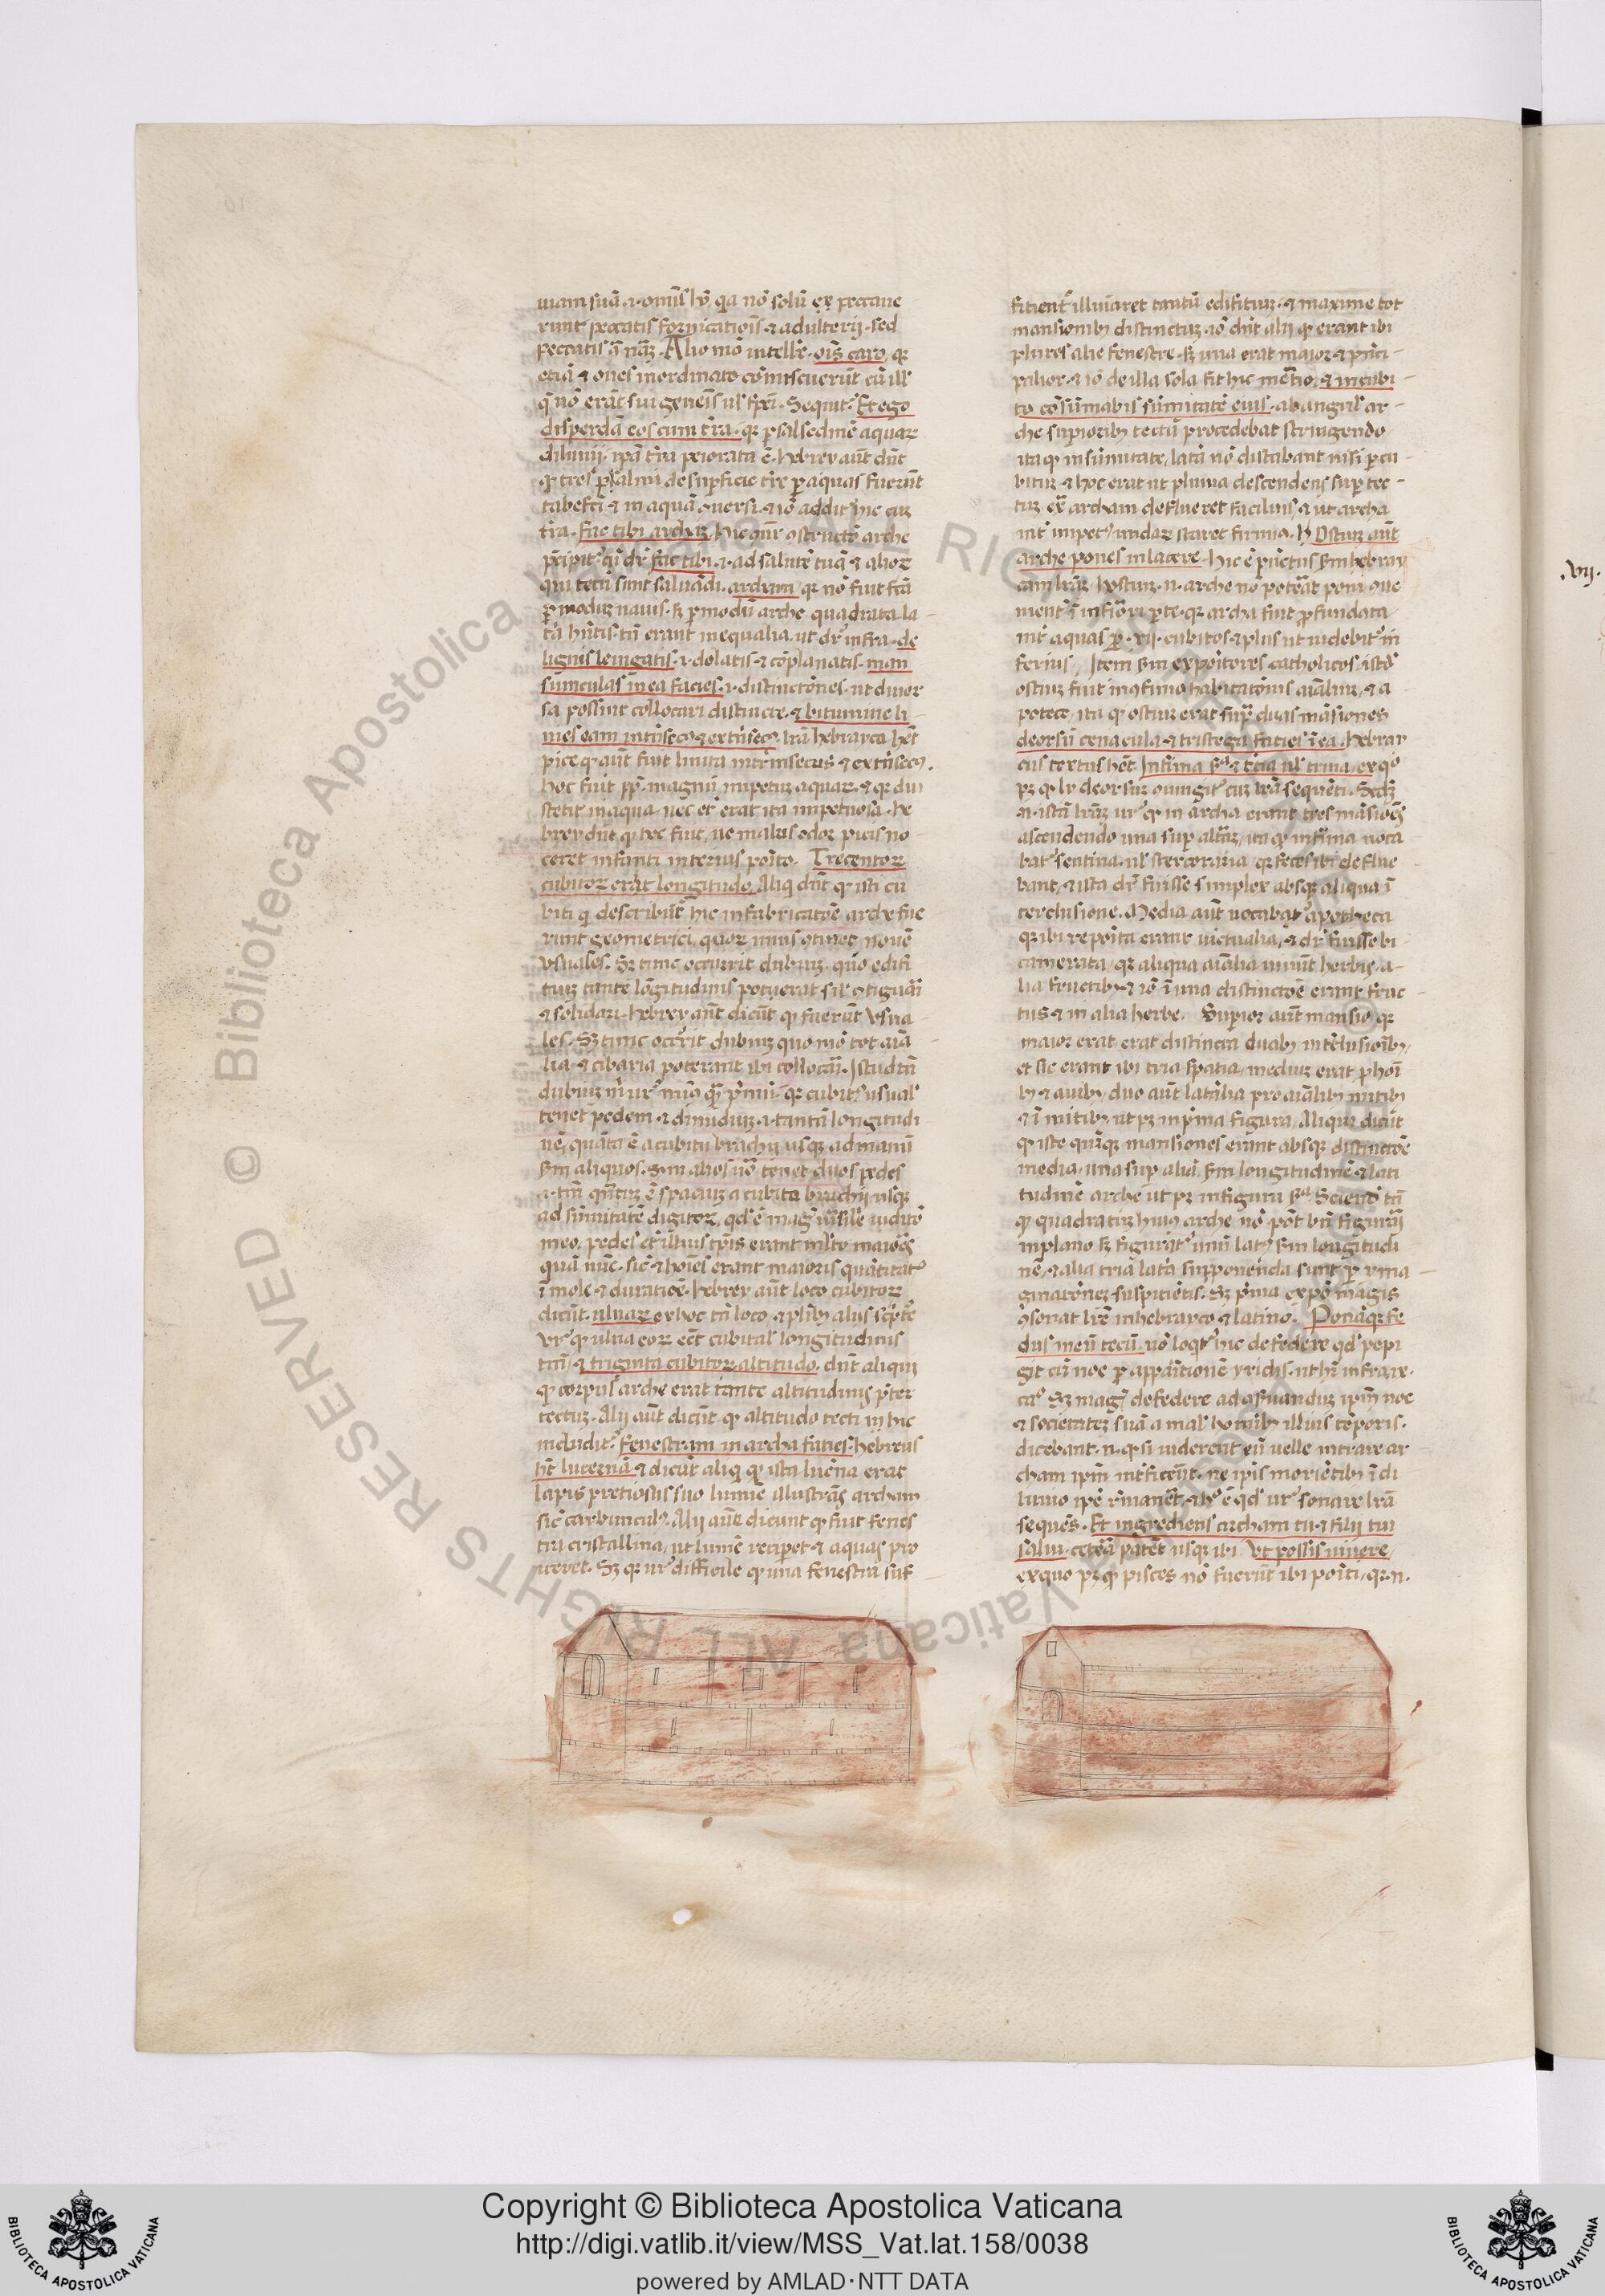 uiam suã .i. omĩs hõ, q̃a nõ solũ ex peccaue
runt peccatis fornicatiõis ⁊ adulterij. sed
peccatis ꝯ̃ nãȝ. Alio mõ intelle. oĩs caro, qꝛ
etiã ⁊ oues inordinate cõmiscuerũt cũ ill
q̃ nõ erãt sui geneĩs ul' spẽi. Sequit̃. Et ego
disperdã eos cum t̃ra. qꝛ ꝑ salsedinẽ aquaꝝ
diluuij. ip̃a t̃ra peiorata ẽ. hebrey aũt dũt
ꝙ tres palmi de sup̃ficie t̃re ꝑ aquas fuerũt
tabefc̃i ⁊ in aquã ꝯuersi. ⁊ iõ addit̃ hic cuȝ
t̃ra. fac tibi archaȝ. hic põit̃ ꝯstructõ arche
p̃cipit̃ cũ dr̃ fac tibi .i. ad salutẽ tuã ⁊ alioꝝ
qui tecũ sunt saluãdi. archam, qꝛ nõ fuit fc̃a
ꝑ moduȝ nauis. sȝ ꝑ modũ arche quadrata la
t̃a hñtis. tñ erant inequalia. ut dr̃ infra. de
lignis leuigatis .i. dolatis ⁊ cõplanatis. man
siunculas in ea facies .i. distinctõnes. ut diuer
sa possint collocari distincte. ⁊ bitumine li
nies eam intrĩsecꝰ ⁊ extrĩsecꝰ. lr̃a hebrayca hẽt
pice. ꝙ aũt fuit linita intrinsecus ⁊ extrĩsecꝰ.
hoc fuit ꝓpt̃ magnũ impetuȝ aquaꝝ. ⁊ qꝛ diu
stetit in aqua. nec et̃ erat ita impetuosa. he
brey dũt ꝙ hec fuit, ne malus odor picis no
ceret infanti interius põito. Trecentoꝝ
cubitoꝝ erit longitudo. Aliq̃ dũt ꝙ isti cu
biti q̃ describũt̃ hic in fabricatõe arche fue
runt geometrici, quoꝝ unus ꝯtinet nouẽ
vsuales. Sȝ tunc occurrit dubiuȝ. quõ edifi
tiuȝ tante lõgitudinis potuerat sil' ꝯtiguari
⁊ solidari. hebrey aũt dicũt ꝙ fuerũt vsua
les. Sȝ tunc occ̃rit dubiuȝ quo mõ tot aĩa
lia ⁊ cibaria poterant ibi collocari. Istud tñ
dubiuȝ m̃ ur̃ minꝰ quã p̃mũ. qꝛ cubitꝰ usual'
tenet pedem ⁊ dimidiuȝ .i. tantã longitudi
nẽ, quãta ẽ a cubitu brachij usqꝫ ad manũ
sm̃ aliquos. sm̃ alios uõ tenet duos pedes
.i. tm̃ q̃ntuȝ ẽ spaciuȝ a cubito brachij usqꝫ
ad sũmitatẽ digitoꝝ, qd' ẽ magꝭ uisile iuditõ
meo. pedes et̃ illius tp̃is erant ml̃to maiores
quã nũc. sic̃ ⁊ hoĩes erant maioris quãtitatꝭ
ĩ mole ⁊ duratiõe. hebrey aũt loco cubitoꝝ
dicũt. ulnaꝝ ex hoc tñ loco. ⁊ plibꝫ alijs sc̃pt̃e
vr̃ ꝙ ulna eoꝝ ect̃ cubital' longitudinis
tm̃. ⁊ triginta cubitoꝝ altitudo. dũt aliqui
ꝙ corpus arche erat tante altitudinis p̃ter
tectuȝ. Alij aũt dicũt ꝙ altitudo tecti in hic
includit̃. fenestram in archa facies. hebreus
hẽt lucernã ⁊ dicũt aliq̃ ꝙ ista lucẽna erat
lapis pretiosus suo lumie illustrãs archam
sic̃ carbunculꝰ. Alij aũt dicunt ꝙ fuit fenes
tra cristallina, ut lumẽ reciperet ⁊ aquas pro
iiceret. Sȝ qꝛ ur̃ difficile ꝙ una fenestra suf
ficient̃ illuĩaret tantũ edifitiuȝ. ⁊ maxime tot
mansionibꝫ distinctuȝ. iõ dũt alij ꝙ erant ibi
plures alie fenestre. sȝ una erat maior ⁊ prĩci
palior. ⁊ iõ de illa sola fit hic mẽtio. ⁊ in cubi
to cõsũmabis sũmitatẽ eius. ab angul' ar
che sup̃ioribꝫ tectũ procedebat stringendo
ita ꝙ in sũmitate, lat̃a nõ distabant nisi ꝑ cu
bituȝ. ⁊ hoc erat ut pluuia descendens sup̃ tec
tuȝ ext̃ archam deflueret facilius, ⁊ ut archa
int̃ impetꝰ undaꝝ staret firmiꝰ. Hostiuȝ aũt
arche pones in latere. hic ẽ p̃nctus sm̃ hebray
cam lr̃aȝ. hostiuȝ .n. arche nõ poterat poni cõue
nient̃ ĩ infĩori ꝑte. qꝛ archa fuit ꝓfundata
int̃ aquas ꝑ .xij. cubitos. ⁊ plus ut uidebit̃ in
ferius. Item sm̃ expõitores catholicos. istd̃
ostiuȝ fuit in ꝯfinio habitatõnis aĩaliuȝ, ⁊ a
potece, ita ꝙ ostiuȝ erat sup̃ duas mãsiones
deorsũ cenacula ⁊ tristega facies ĩ ea. hebray
cus textus hẽt. Infima sc̃da ⁊ tertia ul' trina, ex qõ
pȝ ꝙ ly deorsuȝ ꝯiungit̃ cuȝ lr̃a sequẽti. Sed'ȝ
.n. istã lr̃aȝ ur̃ ꝙ in archa erant tres mãsiões
ascendendo una sup̃ altãȝ, ita ꝙ infima uoca
bat̃ sentina. ul' stercoraria. qꝛ feces ibi deflue
bant, ⁊ ista dr̃ fuisse simplex absqꝫ aliqua ĩ
terclusione. Media aũt uocabat̃ apotheca
qꝛ ibi repõita erant uictualia, ⁊ dr̃ fuisse bi
camerata, qꝛ aliqua aĩalia uiuũt herbis, a
lia fructibꝫ. ⁊ iõ ĩ una distinctõe erant fruc
tus ⁊ in alia herbe. Superior aũt mansio qꝛ
maior erat. erat distincta duabꝫ int̃clusiõibꝫ,
et sic erant ibi tria spatia, mediuȝ erat ꝓ hoĩ
bꝫ ⁊ auibꝫ, duo aũt lat̃alia pro aĩalibꝫ mitibꝫ
⁊ ĩmitibꝫ. ut pȝ in p̃ma figura. Aliqui dicũt
ꝙ iste quĩqꝫ mansiones erant absqꝫ distinctõe
media, una sup̃ aliã. sm̃ longitudinẽ ⁊ lati
tudinẽ arche ut pȝ in figura sc̃da. Sciend' tñ
ꝙ quadratuȝ huiꝰ arche nõ põt bñ figurari
in plano sȝ figurat̃ unũ latꝰ sm̃ longitudi
nẽ, ⁊ alia tria lat̃a supponenda sunt ꝑ yma
ginatõneȝ suspicientis. Sȝ p̃ma expõ magis
ꝯsonat lr̃e in hebrayco ⁊ latino. Ponãqꝫ fe
dus meũ tecũ. nõ loqt̃ hic de federe qd' pepi
git cũ noe ꝑ apparitionẽ yridis. ut hr̃ infra .ix.
ca°. Sȝ magꝭ de federe ad asseruanduȝ ip̃m noe
⁊ societateȝ suã a mal' hoĩnibꝫ illius tẽporis.
dicebant .n. ꝙ si uiderent eũ uelle intrare ar
cham ip̃m int̃ficerẽt. ne ip̃is moriẽtibꝫ ĩ di
luuio ip̃e rẽmaneret. ⁊ hõ ẽ qd' ur̃ sonare lr̃a
sequẽs. Et ingrediens archam tu ⁊ filij tui
salui. cetera patẽt usqꝫ ibi ut possĩt uiuere,
ex quo pȝ ꝙ pisces nõ fuerũt ibi põiti, qꝛ .n.
.vij.
Copyright © Biblioteca Apostolica Vaticana
http://digi.vatlib.it/view/MSS_Vat.lat.158/0038
powered by AMLAD·NTT DATA
BIBLIOTECA APOSTOLICA VATICANA
BIBLIOTECA APOSTOLICA VATICANA
© Biblioteca Apostolica Vaticana ALL RIGHTS RESERVED